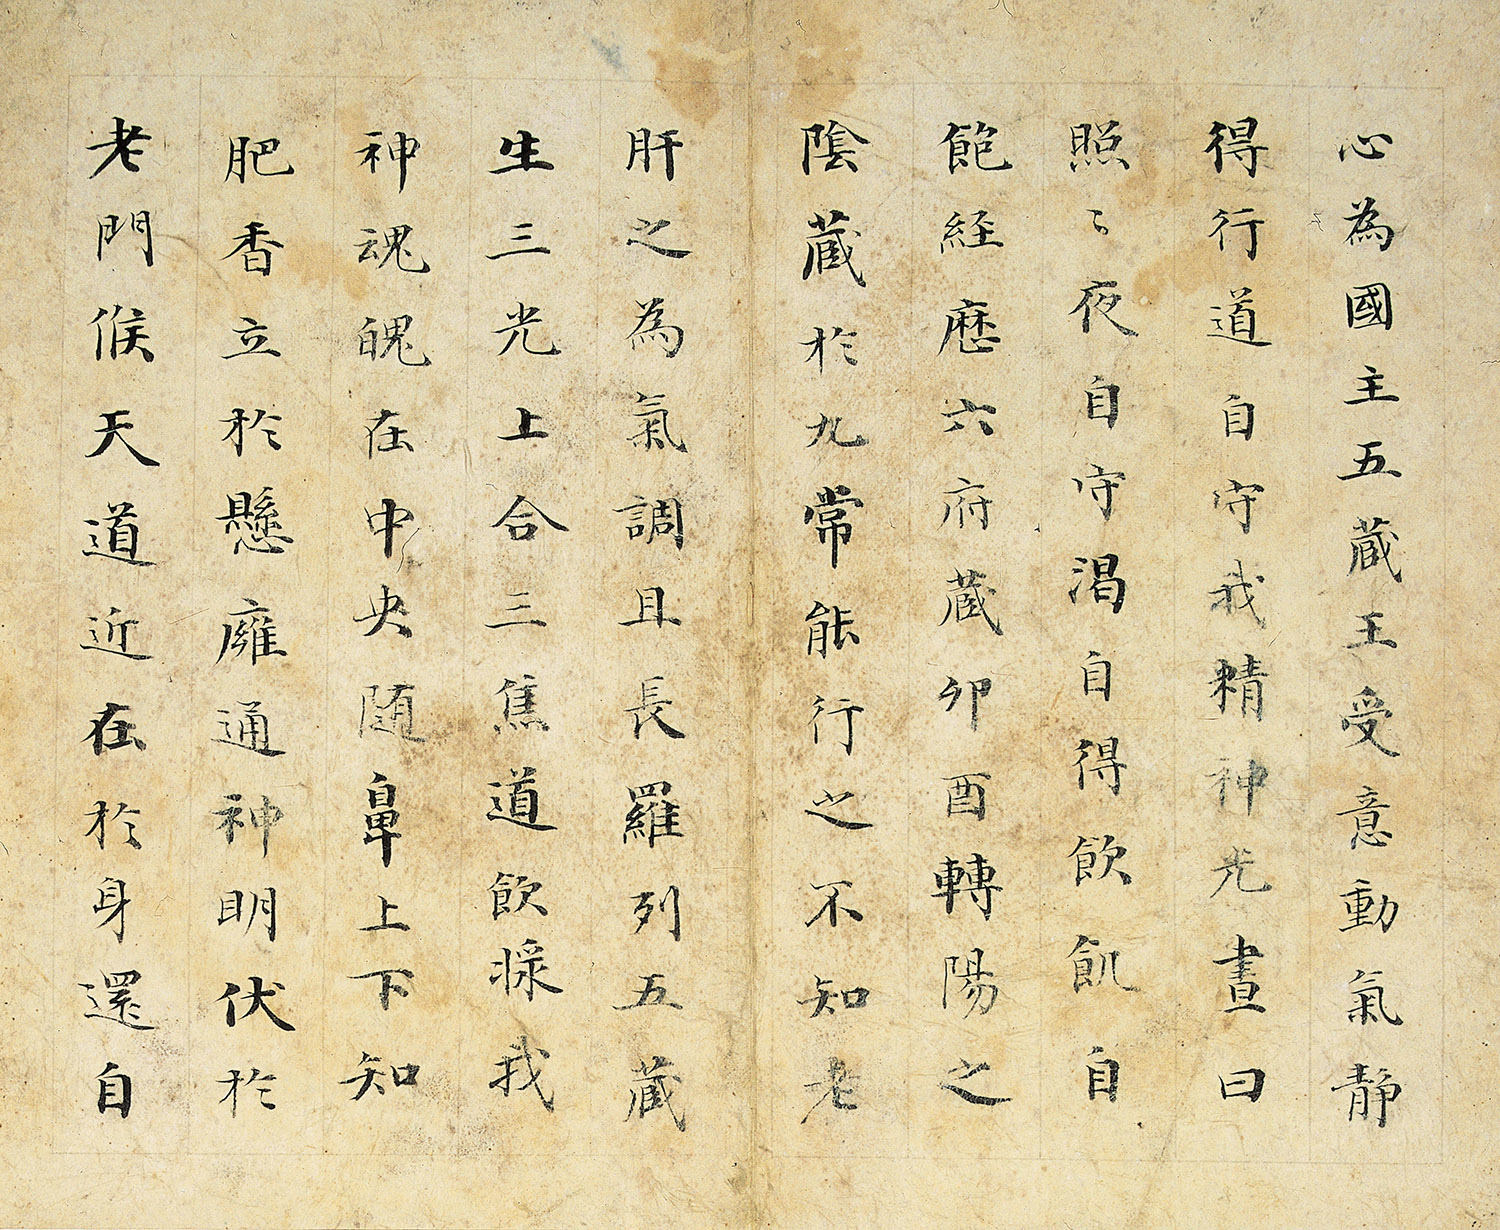 心為國主五蔵王受意動氣静
得行道自守我精神光晝曰
照〻夜自守渇自得飲飢自
飽経歴六府蔵卯酉轉陽之
陰蔵於九常能行之不知老
肝之為氣調且長羅列五蔵
生三光上合三焦道飲漿我
神魂魄在中央随鼻上下知
肥香立於懸廱通神明伏於
老門候天道近在於身還自